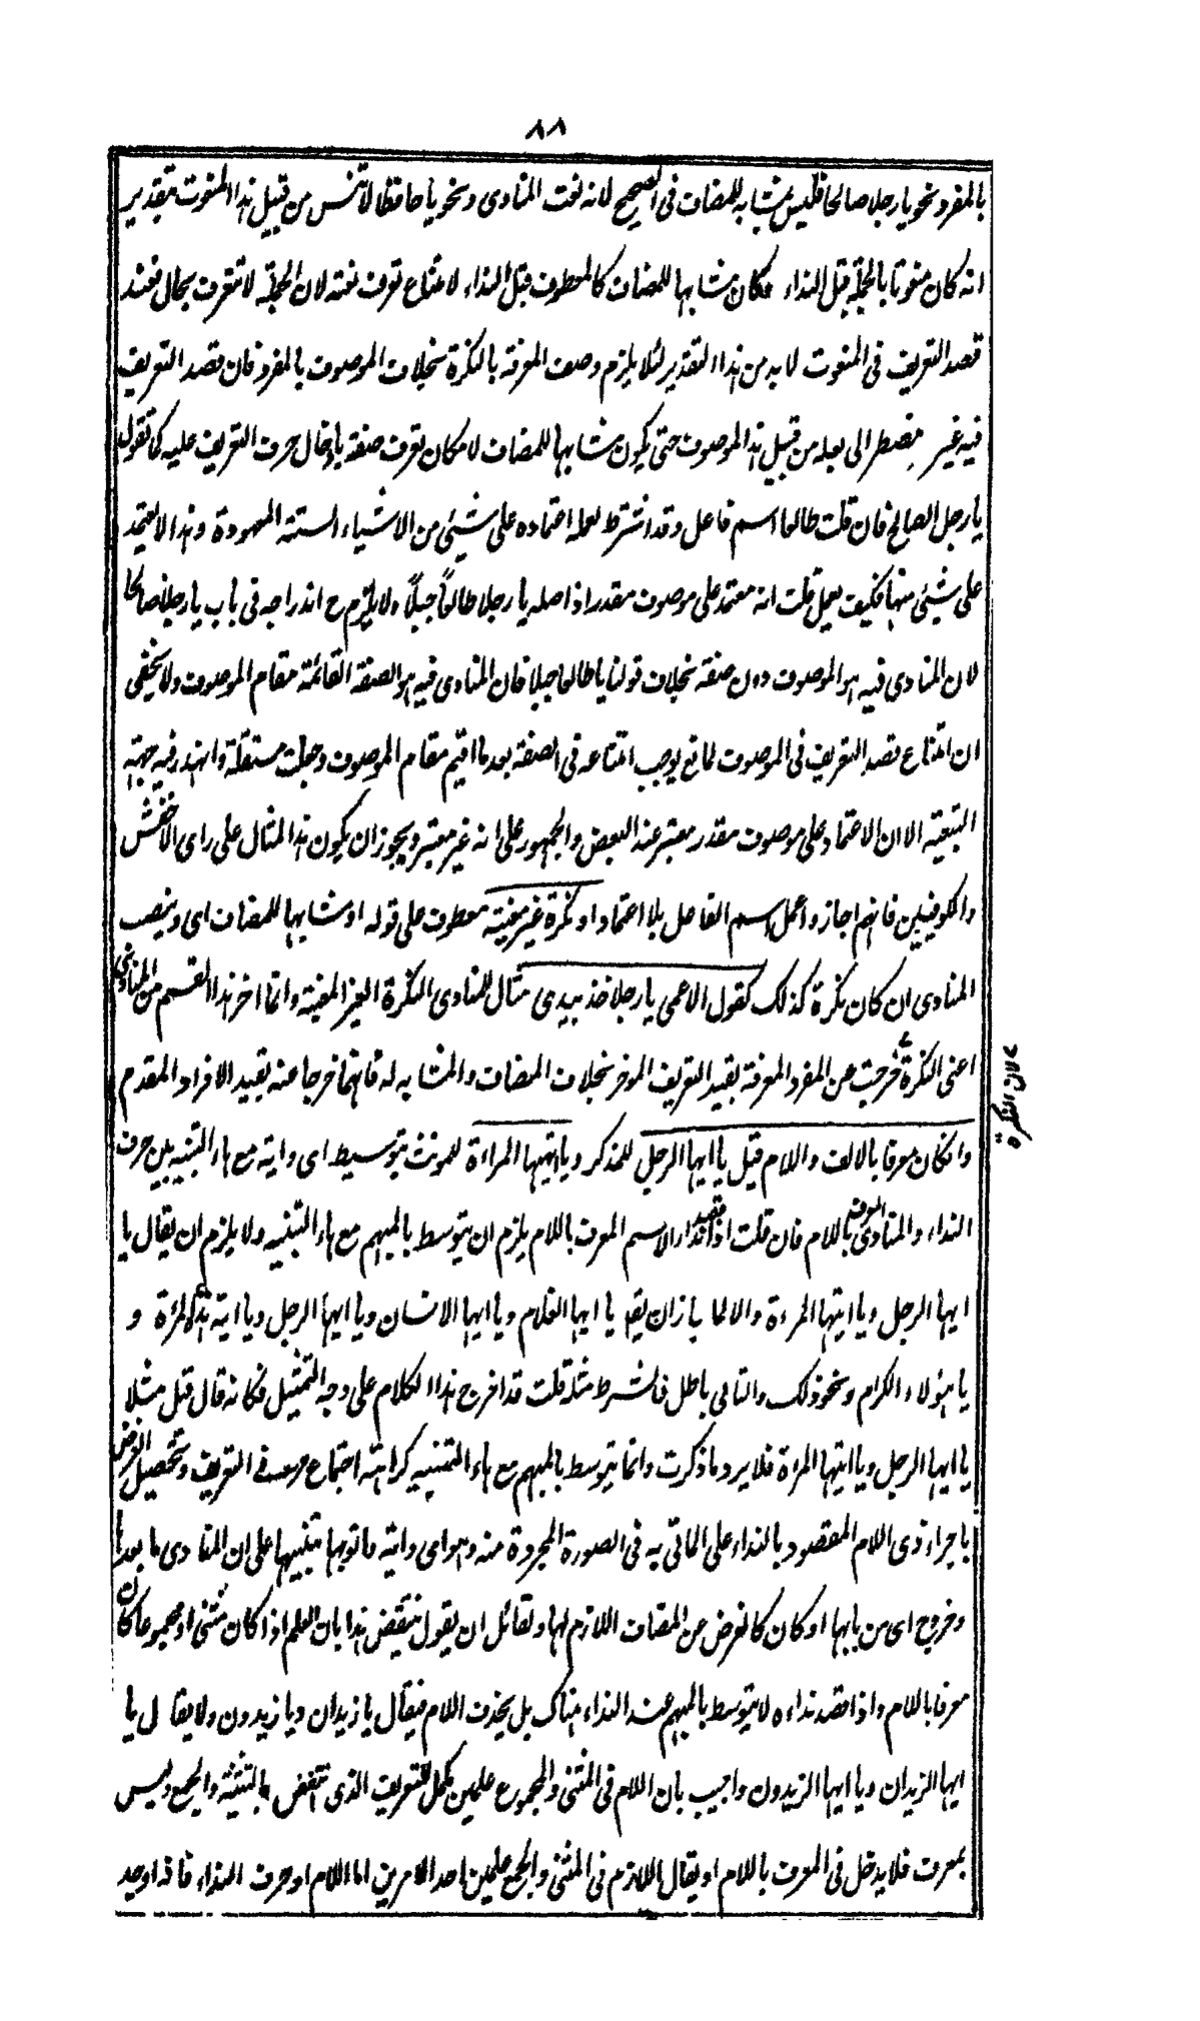 ٨٨
بالمفرد نحو يا رجلا صالحا فليس بمشابه للمضاف فى الصحيح لانه نعت المنادى ونحو يا حافظا لا تنس من قبيل هذا المنعوت بتقدير
انه كان منعوتا بالجملة قبل النداء فكان مشابها للمضاف كالمعطوف قبل النداء لامتناع تعرف نعته لان الجملة لا تتعرف بحال فعند
قصد التعريف فى المنعوت لا بد من هذا التقدير لئلا يلزم وصف المعرفة بالنكرة بخلاف الموصوف بالمفرد فان قصد التعريف
فيه غير مضطر الى جعله من قبيل هذا الموصوف حتى يكون مشابها للمضاف لامكان تعرف صفته بادخال حرف التعريف عليه كما تقول
يا رجل الصالح فان قلت طالعا اسم فاعل وقد اشترط لعمله اعتماده على شيئ من الاشياء الستة المعهودة وهذا لا يعتمد
على شيئ منها فكيف يعمل قلت انه معتمد على موصوف مقدر اذ اصله يا رجلا طالعًا جبلًا ولا يلزم ح اندراجه فى باب يا رجلا صالحا
لان المنادى فيه هو الموصوف دون صفته بخلاف قولنا يا طالعا جبلا فان المنادى فيه هو الصفة القائمة مقام الموصوف ولا يخفى
ان امتناع قصد التعريف فى الموصوف لمانع يوجب امتناعه فى الصفة بعد ما اقيم مقام الموصوف وجعلت مستقلة وانهدر فيه جهة
التبعية الا ان الاعتماد على موصوف مقدر معتبر عند البعض والجمهور على انه غير معتبر ويجوز ان يكون هذا المثال على راى الاخفش
والكوفيين فانهم اجازوا عمل اسم الفاعل بلا اعتماد او نكرة غير معينة معطوف على قوله او مشابها للمضاف اى وينصب
المنادى ان كان نكرة كذلك كقول الاعمى يا رجلا خذ بيدى مثال للمنادى النكرة الغير المعينة وانما اخر هذا القسم من المنادى
اعنى النكرة خرجت عن المفرد المعرفة بقيد التعريف الموخر بخلاف المضاف والمشابه له فانهما خرجا عنه بقيد الافراد المقدم
لان النكرة
وان كان معرفا بالالف واللام قيل يا ايها الرجل للمذكر ويا ايتها المراءة للمونث بتوسيط اى واية مع هاء التنبيه بين حرف
النداء والمنادى المعرف باللام فان قلت اذا قصد نداء الاسم المعرف باللام يلزم ان يتوسط بالمبهم مع هاء التنبيه ولا يلزم ان يقال يا
ايها الرجل ويا ايتها المرءة والا لما جاز ان يقم يا ايها الغلام ويا ايها الانسان ويا ايهذا الرجل ويا اية هذه المرءة و
يا هؤلاء الكرام ونحو ذلك والتالى باطل فالشرط مثله قلت قد اخرج هذا الكلام على وجه التمثيل فكانه قال قيل مثلا
يا ايها الرجل ويا ايتها المراة فلا يرد ما ذكرت وانما يتوسط بالمبهم مع هاء التنبيه كراهة اجتماع حرفى التعريف وتحصيل الغرض
باجراء ذى اللام المقصود بالنداء على الماتى به فى الصورة المجردة منه وهو اى واية فاتوبها تنبيها على ان المنادى ما بعدها
وخروج اى من بابها او كان كالعوض عن المضاف اللازم لها ولقائل ان يقول ينتقض هذا بان العلم اذا كان مثنى او مجموعا كان
معرفا باللام واذا قصد نداءه لا يتوسط بالمبهم عند النداء هناك بل يحذف اللام فيقال يا زيدان ويا زيدون ولا يقال يا
ايها الزيدان ويا ايها الزيدون واجيب بان اللام فى المثنى والمجموع علمين مكمل للتعريف الذى انتقض بالتثنية والجمع وليس
بمعرف فلا يدخل فى المعرف باللام او يقال اللازم فى المثنى والجمع علمين احد الامرين اما اللام او حرف النداء فاذا وجد